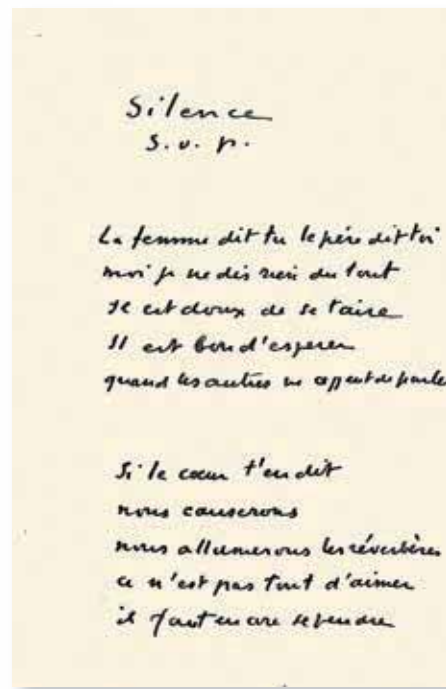 Silence
s. v. p.
La femme dit tu le père dit toi
moi je ne dis rien du tout
Il est doux de se taire
Il est bon d'espérer
quand les autres ne cessent de parler
Si le cœur t'en dit
nous causerons
nous allumerons les réverbères
ce n'est pas tout d'aimer
il faut encore